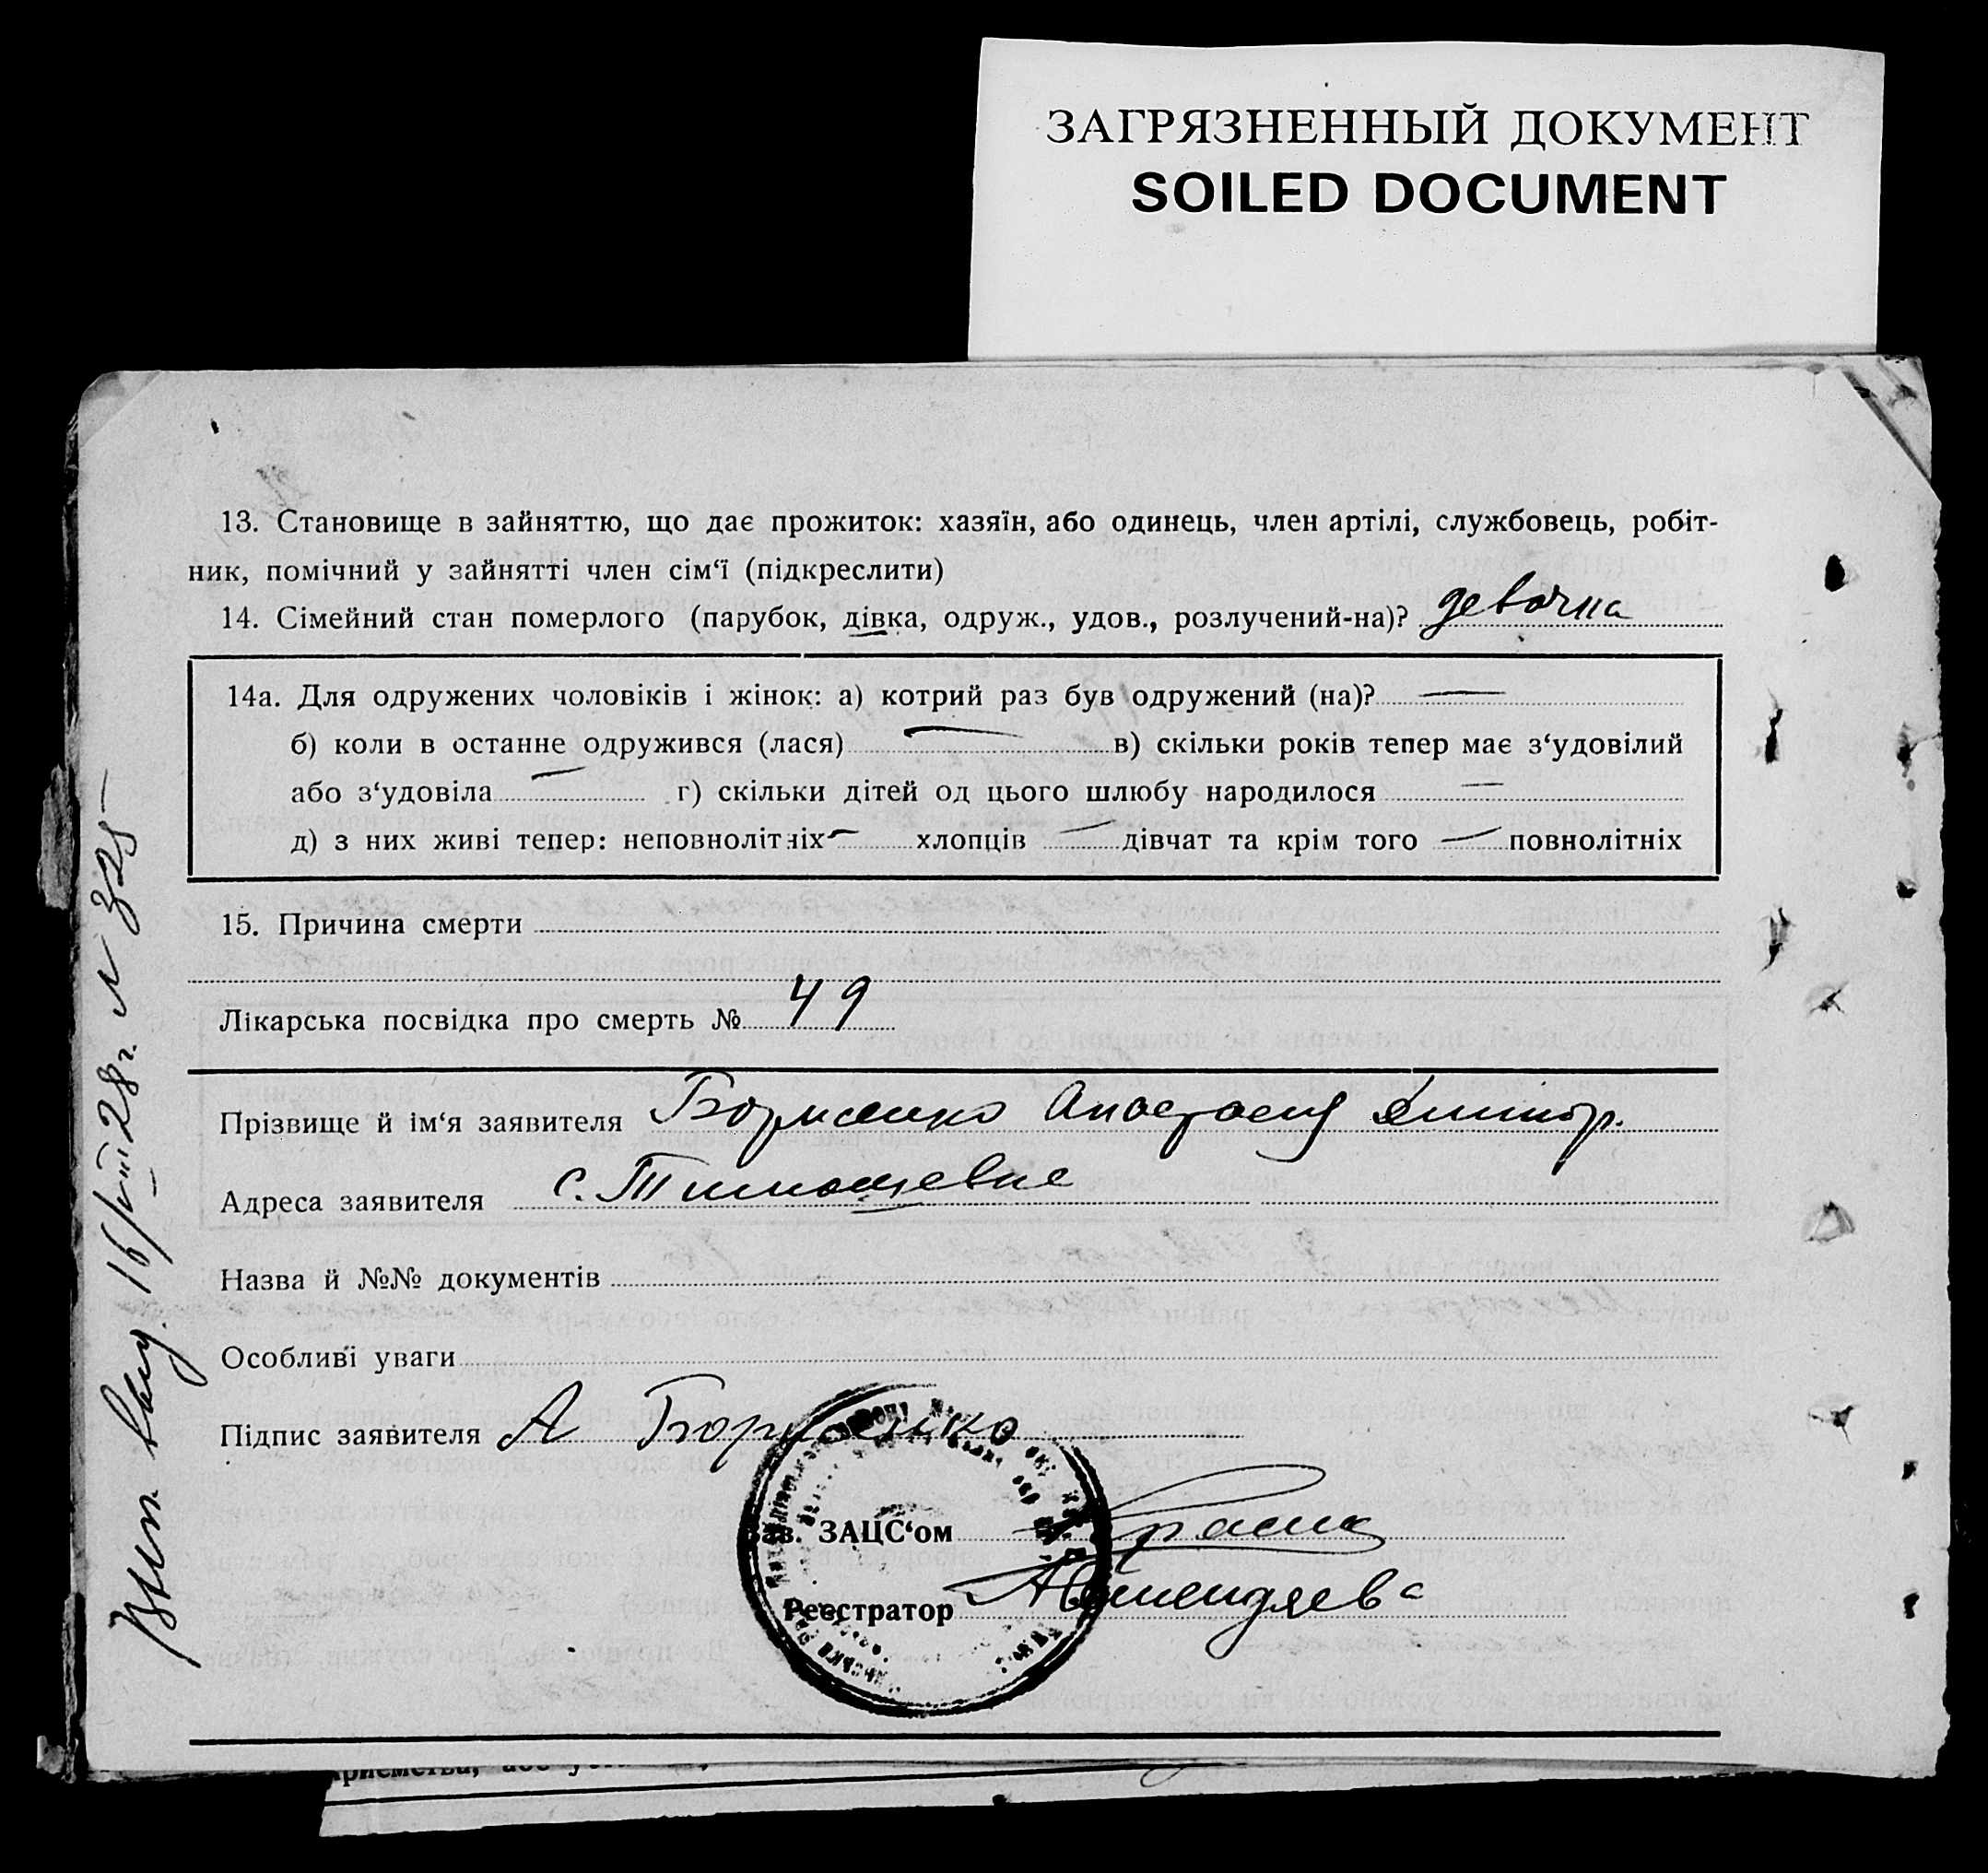 ЗАГРЯЗНЕННЫЙ ДОКУМЕНТ
SOILED DOCUMENT
13. Становище в зайняттю, що дає прожиток: хазяїн, або одинець, член артілі, службовець, робіт-
ник, помічний у зайнятті член сім‘ї (підкреслити)
14. Сімейний стан померлого (парубок, дівка, одруж., удов., розлучений-на)? девочка
14а. Для одружених чоловіків і жінок: а) котрий раз був одружений (на)? —
б) коли в останнє одружився (лася) — в) скільки років тепер має з‘удовілий
або з‘удовіла — г) скільки дітей од цього шлюбу народилося —
д) з них живі тепер: неповнолітніх — хлопців — дівчат та крім того — повнолітніх
15. Причина смерти
Лікарська посвідка про смерть № 49
Прізвище й ім‘я заявителя Борисенко Анастасия Дмитр.
Адреса заявителя с. Тимошевка
Назва й №№ документів
Особливі уваги
Підпис заявителя А Борисенко
Зв. ЗАЦС‘ом
Реєстратор
Вып. выд. 16/VIII 28 г. N 325